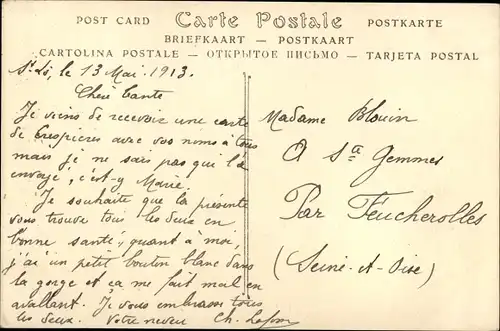 POST CARD
Carte Postale
POSTKARTE
BRIEFKAART — POSTKAART
CARTOLINA POSTALE — ОТКРЫТОЕ ПИСЬМО — TARJETA POSTAL
St Lô, le 13 Mai 1913.
Chère Tante
Je viens de recevoir une carte
de Crespières avec vos noms à tous
mais je ne sais pas qui l'a
envoyé, c'est-y Marie.
Je souhaite que la présente
vous trouve tous les deux en
bonne santé; quant à moi,
j'ai un petit bouton blanc dans
la gorge et ça me fait mal en
avallant. Je vous embrasse tous
les deux. Votre neveu Ch.
Madame Blouin
à Ste Gemmes
Par Feucherolles
(Seine-et-Oise)